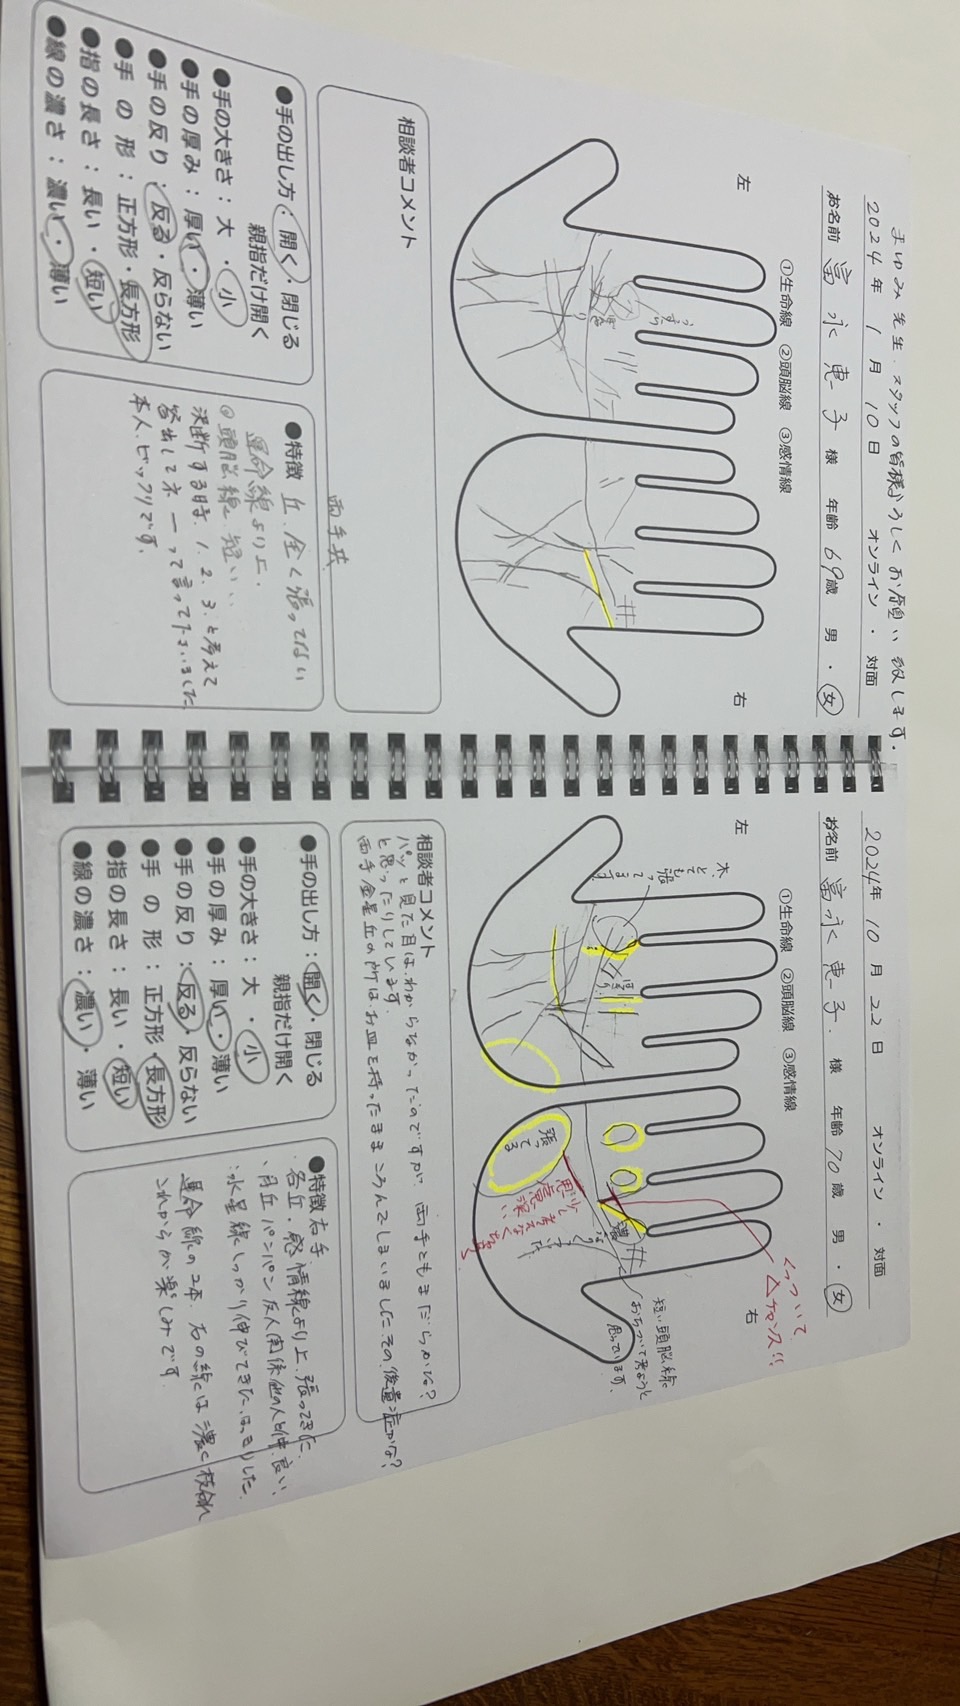 まゆみ先生、スタッフの皆様よろしくお願い致します。
2024年 1月 10日 オンライン・対面
お名前 富永恵子 様 年齢 69歳 男・女
①生命線 ②頭脳線 ③感情線
左
右
うすら
相談者コメント
両手共
●手の出し方：開く・閉じる
親指だけ開く
●手の大きさ：大・小
●手の厚み：厚い・薄い
●手の反り：反る・反らない
●手の形：正方形・長方形
●指の長さ：長い・短い
●線の濃さ：濃い・薄い
●特徴 丘、全く張ってない
運命線より上、
◎頭脳線、短い、
決断する時、1、2、3、と考えて
答出してネーって言ってしまいました
本人、ビックリです。
2024年 10月 22日 オンライン・対面
お名前 富永恵子 様 年齢 70歳 男・女
①生命線 ②頭脳線 ③感情線
左
右
木、とても張ってます
張ってる
濃
くっついて
△チャンス!!
短い頭脳線
おちついて考ようと
思っています。
相談者コメント
パッと見た目は、わからなかったのですが、両手ともまだらかな？
と思ったりしています。
両手金星丘の所は、お皿を持ったままころんでしまいましたその後遺症かな？
●手の出し方：開く・閉じる
親指だけ開く
●手の大きさ：大・小
●手の厚み：厚い・薄い
●手の反り：反る・反らない
●手の形：正方形・長方形
●指の長さ：長い・短い
●線の濃さ：濃い・薄い
●特徴 右手、
各丘・感情線より上、張ってきた、
月丘パンパン友人関係他の人と仲良い、
水星線しっかり伸びてきた、はっきりした
運命線の2本、右の線は濃く枝分れ
これからが楽しみです